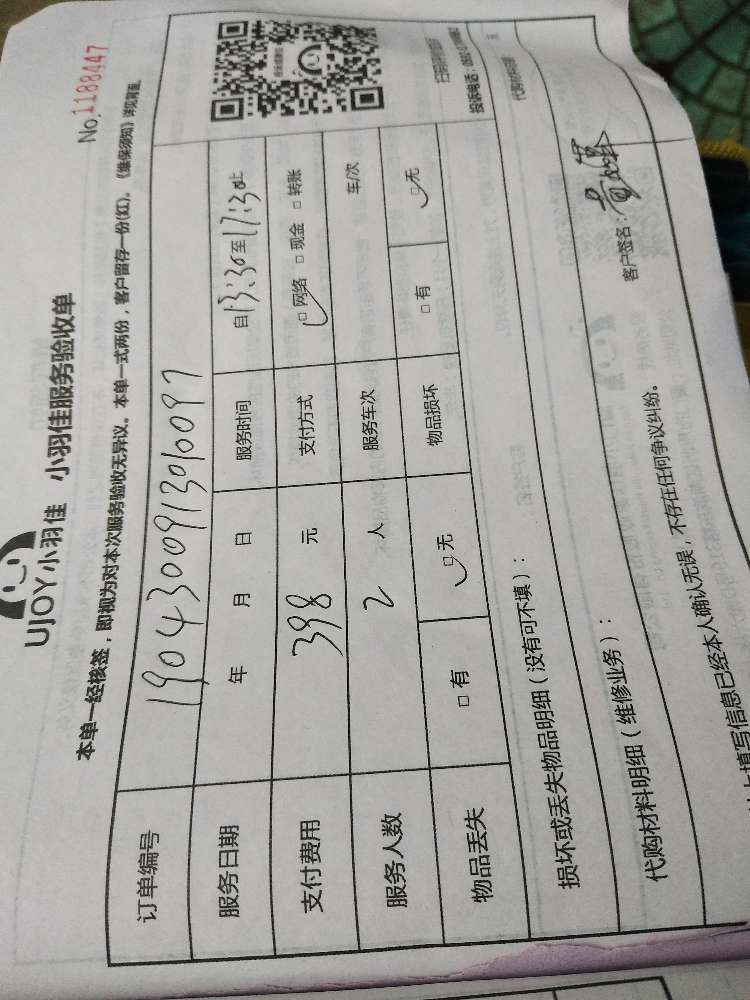 UJOY小羽佳 小羽佳服务验收单
No.1188447
本单一经核签，即视为对本次服务验收无异议。本单一式两份，客户留存一份(红)。《维保须知》详见背面。
订单编号 1904300913010097
服务日期 年 月 日 服务时间 自13:30至17:30止
支付费用 398 元 支付方式 □网络 □现金 □转账
服务人数 2 人 服务车次 车/次
物品丢失 □有 □无 物品损坏 □有 □无
损坏或丢失物品明细（没有可不填）：
代购材料明细（维修业务）：
填写信息已经本人确认无误，不存在任何争议纠纷。
客户签名：